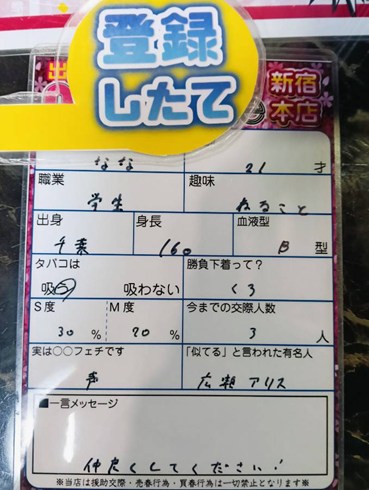 登録
したて
出
新宿
本店
なな
21 才
職業
学生
趣味
ねること
出身
千葉
身長
160
血液型
B 型
タバコは
吸う 吸わない
勝負下着って?
くろ
S度
30 %
M度
70 %
今までの交際人数
3 人
実は〇〇フェチです
声
「似てる」と言われた有名人
広瀬アリス
■一言メッセージ
仲良くしてください!
※当店は援助交際・売春行為・買春行為は一切禁止となります※